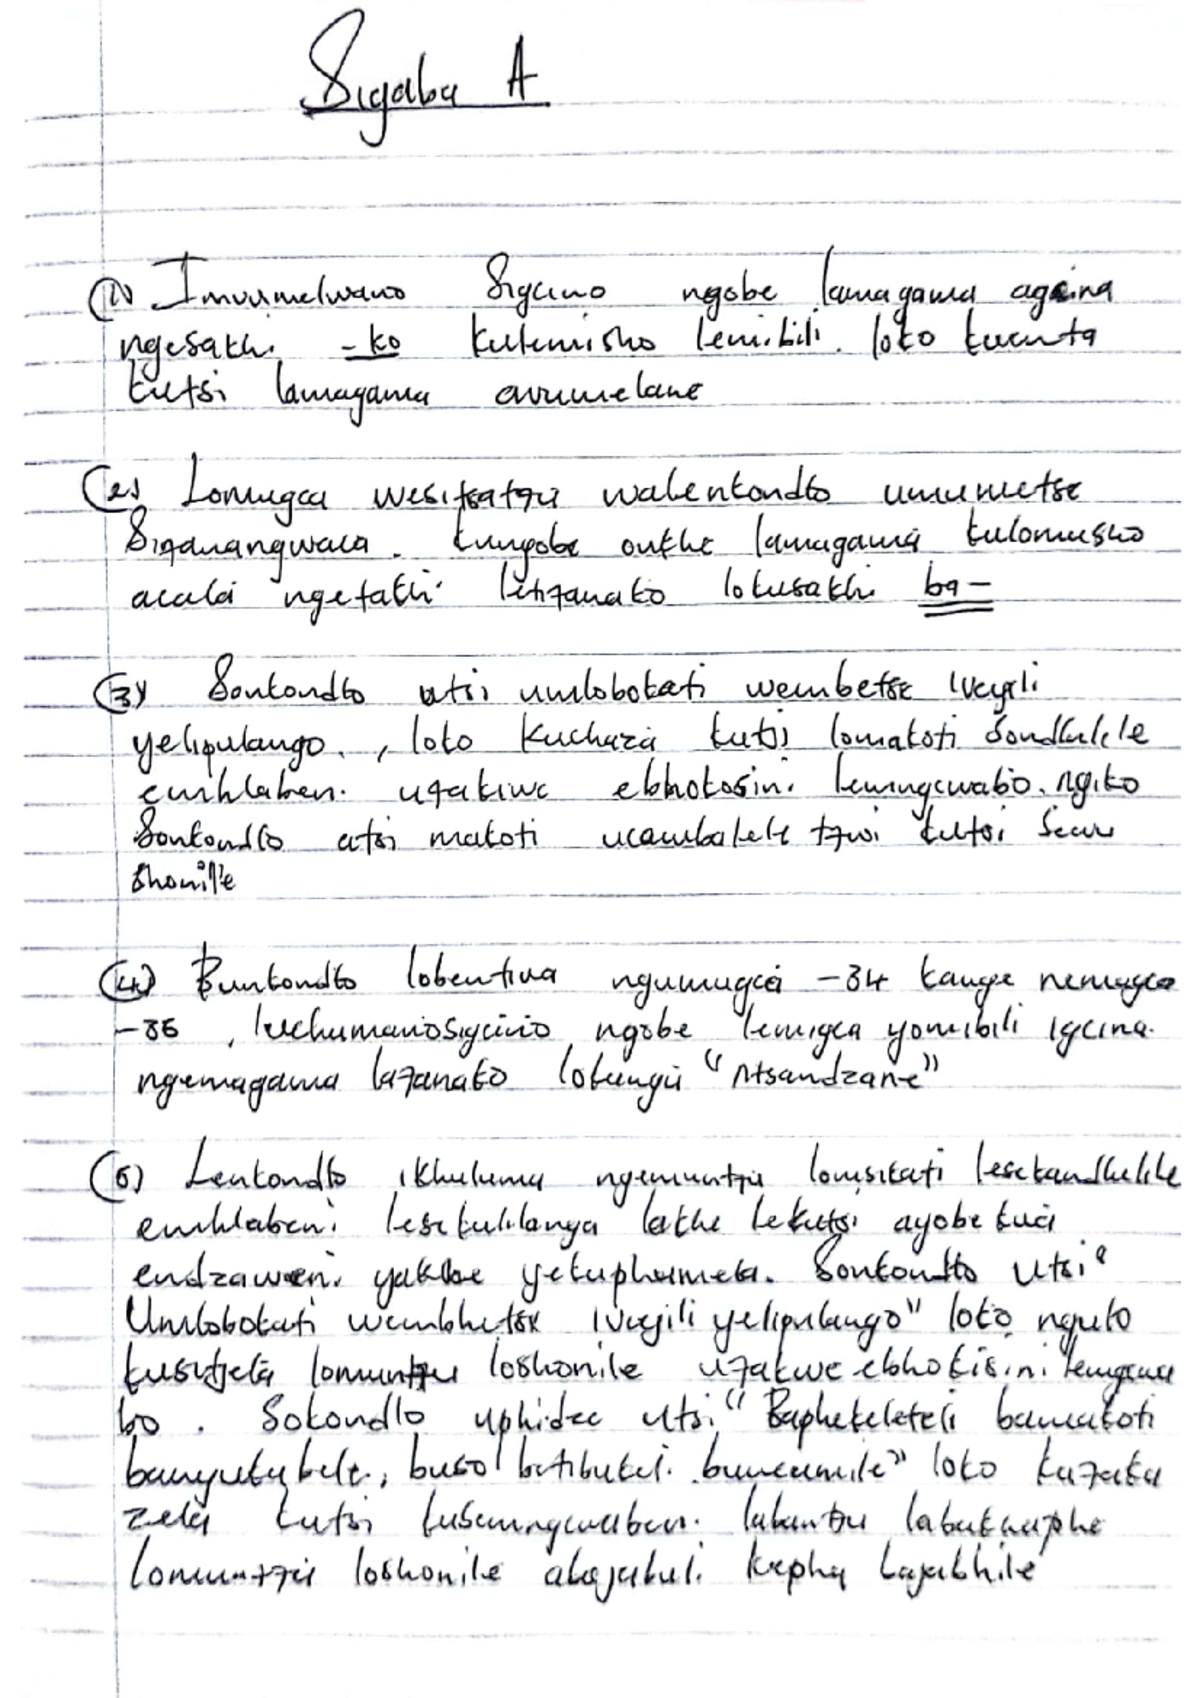 Sigaba A
(1) Imvumelwano Sigcino ngobe lamagama agcina
ngesakhi -ko kulemisho lemibili. loko kwenta
kutsi lamagama avumelane
(2) Lomugca wesitsatfu walenkondlo unemetse
Sifanangwaca. kungobe onkhe lamagama kulomusho
acala ngetakhi letifanako lokusakhi ba-
(3) Sonkondlo utsi umlobokati wembetse iveyili
yelipulango, loko kuchaza kutsi lomakoti Sondlulele
emhlabeni ufakiwe ebhokisini lemngcwabo. ngiko
Sonkondlo atsi makoti ucambalele tfwi kutsi Sewu
Shonile
(4) Bunkondlo lobentiwa ngumugca -34 kanye nemugca
-35, luchumanosigcino ngobe lemigca yomibili igcina
ngemagama lafanako lokungu "Ntsandzane"
(5) Lenkondlo ikhuluma ngemuntfu lomsikati lesekandlulile
emhlabeni lesekulilanga lakhe lekutsi ayobekwa
endzaweni yakhe yekuphumula. Sonkondlo utsi "
Umlobokati wembhetse iveyili yelipulango" loko ngulo
kusitjela lomuntfu loshonile ufakwe ebhokisini lemngcwa
bo. Sokondlo uphidze utsi "Baphekeleteli bamakoti
banyukubele, buso betibukeli buncumile" loko kufaka
zela kutsi kusemngcwabeni. labantfu labakhaphe
lomuntfu loshonile abajabuli kepha bajabhile